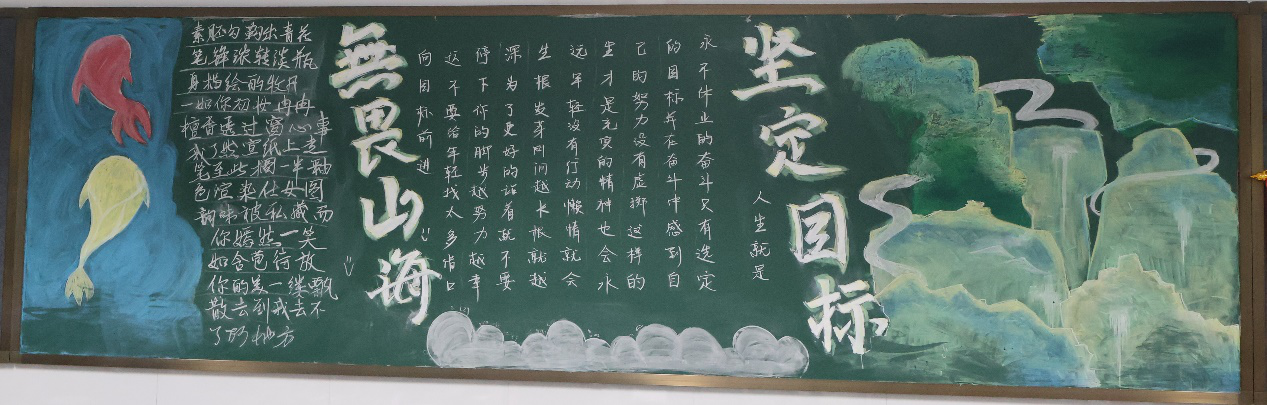 坚定目标
人生就是
永不休止的奋斗又有选定
的目标并在奋斗中感到自
己的努力没有虚掷这样的
生才是充实的精神也会永
远年轻没有行动懒惰就会
生根发芽时间越长怅就越
深为了更好的活着就不要
停下你的脚步越努力越幸
运不要给年轻找太多借口
向目标前进
無畏山海
素胚勾勒出青花
笔锋浓转淡瓶
身描绘的牡丹
一如你初妆冉冉
檀香透过窗心事
我了然宣纸上走
笔至此搁一半釉
色渲染仕女图
韵味被私藏而
你嫣然一笑
如含苞待放
你的美一缕飘
散去到我去不
了的地方